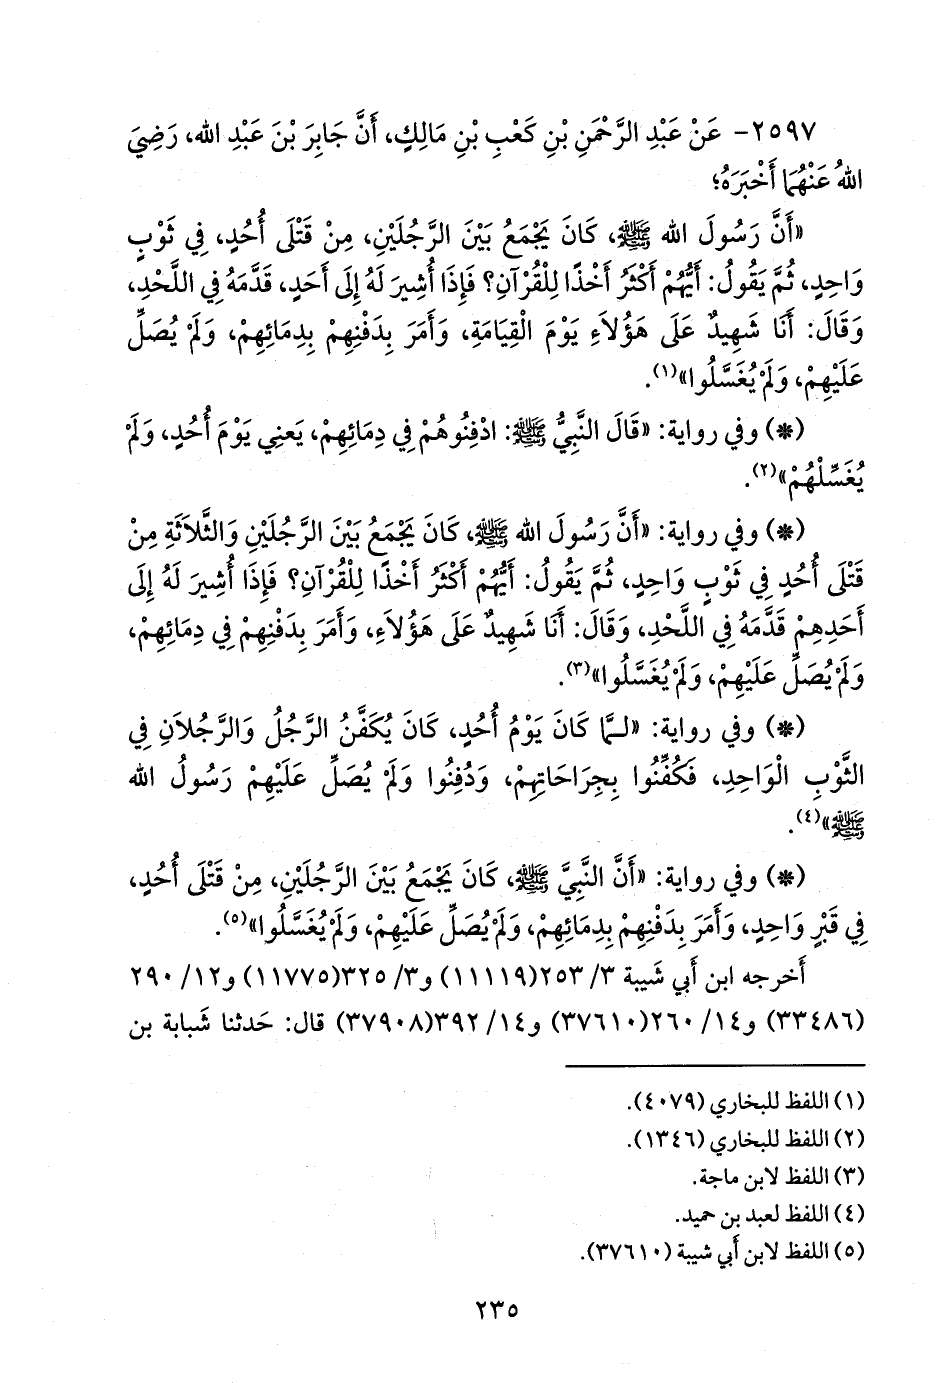 ٢٥٩٧- عَنْ عَبْدِ الرَّحْمَنِ بْنِ كَعْبِ بْنِ مَالِكٍ، أَنَّ جَابِرَ بْنَ عَبْدِ الله، رَضِيَ
اللهُ عَنْهُمَا أَخْبَرَهُ؛
«أَنَّ رَسُولَ الله ﷺ، كَانَ يَجْمَعُ بَيْنَ الرَّجُلَيْنِ، مِنْ قَتْلَى أُحُدٍ، فِي ثَوْبٍ
وَاحِدٍ، ثُمَّ يَقُولُ: أَيُّهُمْ أَكْثَرُ أَخْذًا لِلْقُرْآنِ؟ فَإِذَا أُشِيرَ لَهُ إِلَى أَحَدٍ، قَدَّمَهُ فِي اللَّحْدِ،
وَقَالَ: أَنَا شَهِيدٌ عَلَى هَؤُلَاءِ يَوْمَ الْقِيَامَةِ، وَأَمَرَ بِدَفْنِهِمْ بِدِمَائِهِمْ، وَلَمْ يُصَلِّ
عَلَيْهِمْ، وَلَمْ يُغَسَّلُوا»(١).
(*) وفي رواية: «قَالَ النَّبِيُّ ﷺ: ادْفِنُوهُمْ فِي دِمَائِهِمْ، يَعنِي يَوْمَ أُحُدٍ، وَلَمْ
يُغَسِّلْهُمْ»(٢).
(*) وفي رواية: «أَنَّ رَسُولَ الله ﷺ، كَانَ يَجْمَعُ بَيْنَ الرَّجُلَيْنِ وَالثَّلَاثَةِ مِنْ
قَتْلَى أُحُدٍ فِي ثَوْبٍ وَاحِدٍ، ثُمَّ يَقُولُ: أَيُّهُمْ أَكْثَرُ أَخْذًا لِلْقُرْآنِ؟ فَإِذَا أُشِيرَ لَهُ إِلَى
أَحَدِهِمْ قَدَّمَهُ فِي اللَّحْدِ، وَقَالَ: أَنَا شَهِيدٌ عَلَى هَؤُلَاءِ، وَأَمَرَ بِدَفْنِهِمْ فِي دِمَائِهِمْ،
وَلَمْ يُصَلِّ عَلَيْهِمْ، وَلَمْ يُغَسَّلُوا»(٣).
(*) وفي رواية: «لَـمَّا كَانَ يَوْمُ أُحُدٍ، كَانَ يُكَفَّنُ الرَّجُلُ وَالرَّجُلَانِ فِي
الثَّوْبِ الْوَاحِدِ، فَكُفِّنُوا بِجِرَاحَاتِهِمْ، وَدُفِنُوا وَلَمْ يُصَلِّ عَلَيْهِمْ رَسُولُ الله
ﷺ»(٤).
(*) وفي رواية: «أَنَّ النَّبِيَّ ﷺ، كَانَ يَجْمَعُ بَيْنَ الرَّجُلَيْنِ، مِنْ قَتْلَى أُحُدٍ،
فِي قَبْرٍ وَاحِدٍ، وَأَمَرَ بِدَفْنِهِمْ بِدِمَائِهِمْ، وَلَمْ يُصَلِّ عَلَيْهِمْ، وَلَمْ يُغَسَّلُوا»(٥).
أخرجه ابن أبي شَيبة ٣/ ٢٥٣(١١١١٩) و٣/ ٣٢٥(١١٧٧٥) و١٢/ ٢٩٠
(٣٣٤٨٦) و١٤/ ٢٦٠(٣٧٦١٠) و١٤/ ٣٩٢(٣٧٩٠٨) قال: حَدثنا شَبابة بن
(١) اللفظ للبخاري (٤٠٧٩).
(٢) اللفظ للبخاري (١٣٤٦).
(٣) اللفظ لابن ماجة.
(٤) اللفظ لعبد بن حميد.
(٥) اللفظ لابن أبي شيبة (٣٧٦١٠).
٢٣٥